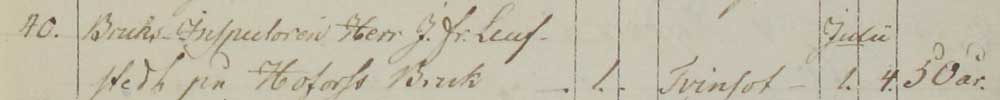 40. Bruks-Inspectoren Herr J. Fr. Leuf- Julii
stedh på Hofors Bruk . 1. Tvinsot - 1. 4. 50 år.